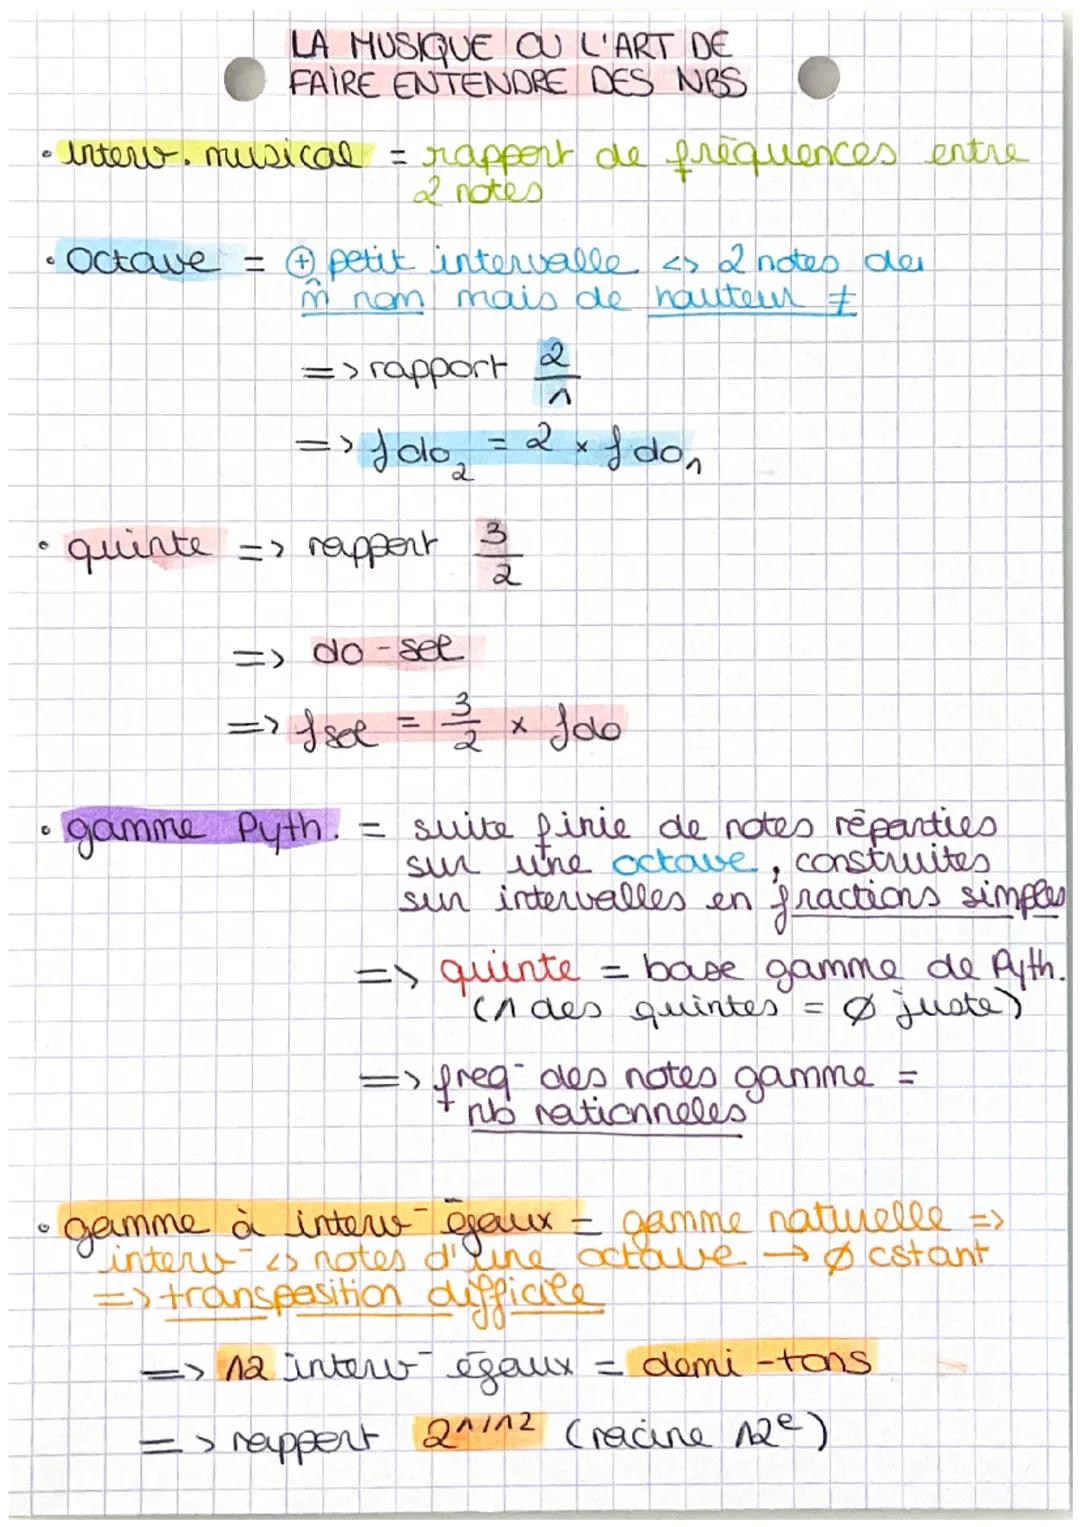 LA MUSIQUE OU L'ART DE
FAIRE ENTENDRE DES NBS
• interv. musical = rapport de fréquences entre
2 notes
• Octave = ⊕ petit intervalle <> 2 notes de
m̂ nom mais de hauteur ≠
=> rapport 2/1
=> f do₂ = 2 × f do₁
• quinte => rapport 3/2
=> do - sol
=> f sol = 3/2 × f do
• gamme Pyth. = suite finie de notes réparties
sur une octave, construites
sur intervalles en fractions simples
=> quinte = base gamme de Pyth.
(1 des quintes = Ø juste)
=> freq- des notes gamme =
+ nb rationneles
• gamme à interv- égaux = gamme naturelle =>
interv- <> notes d'une octave → Ø cstant
=> transposition difficile
=> 12 interv- égaux = demi-tons
=> rapport 2^1/12 (racine 12e)